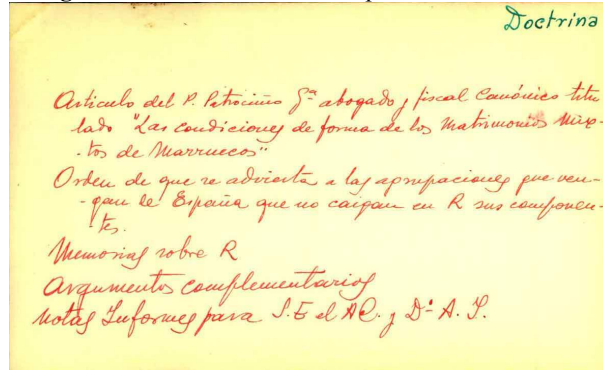 Doctrina
Articulo del P. Patrocinio Gª abogado y fiscal Canónico titu
lado "Las condiciones de forma de los Matrimonios Mix-
-tos de Marruecos".
Orden de que se advierta a las agrupaciones que ven-
-gan de España que no caigan en R sus componen-
-tes.
Memorias sobre R
Argumentos complementarios
Notas Informes para S.E el AC. y Dº A. I.